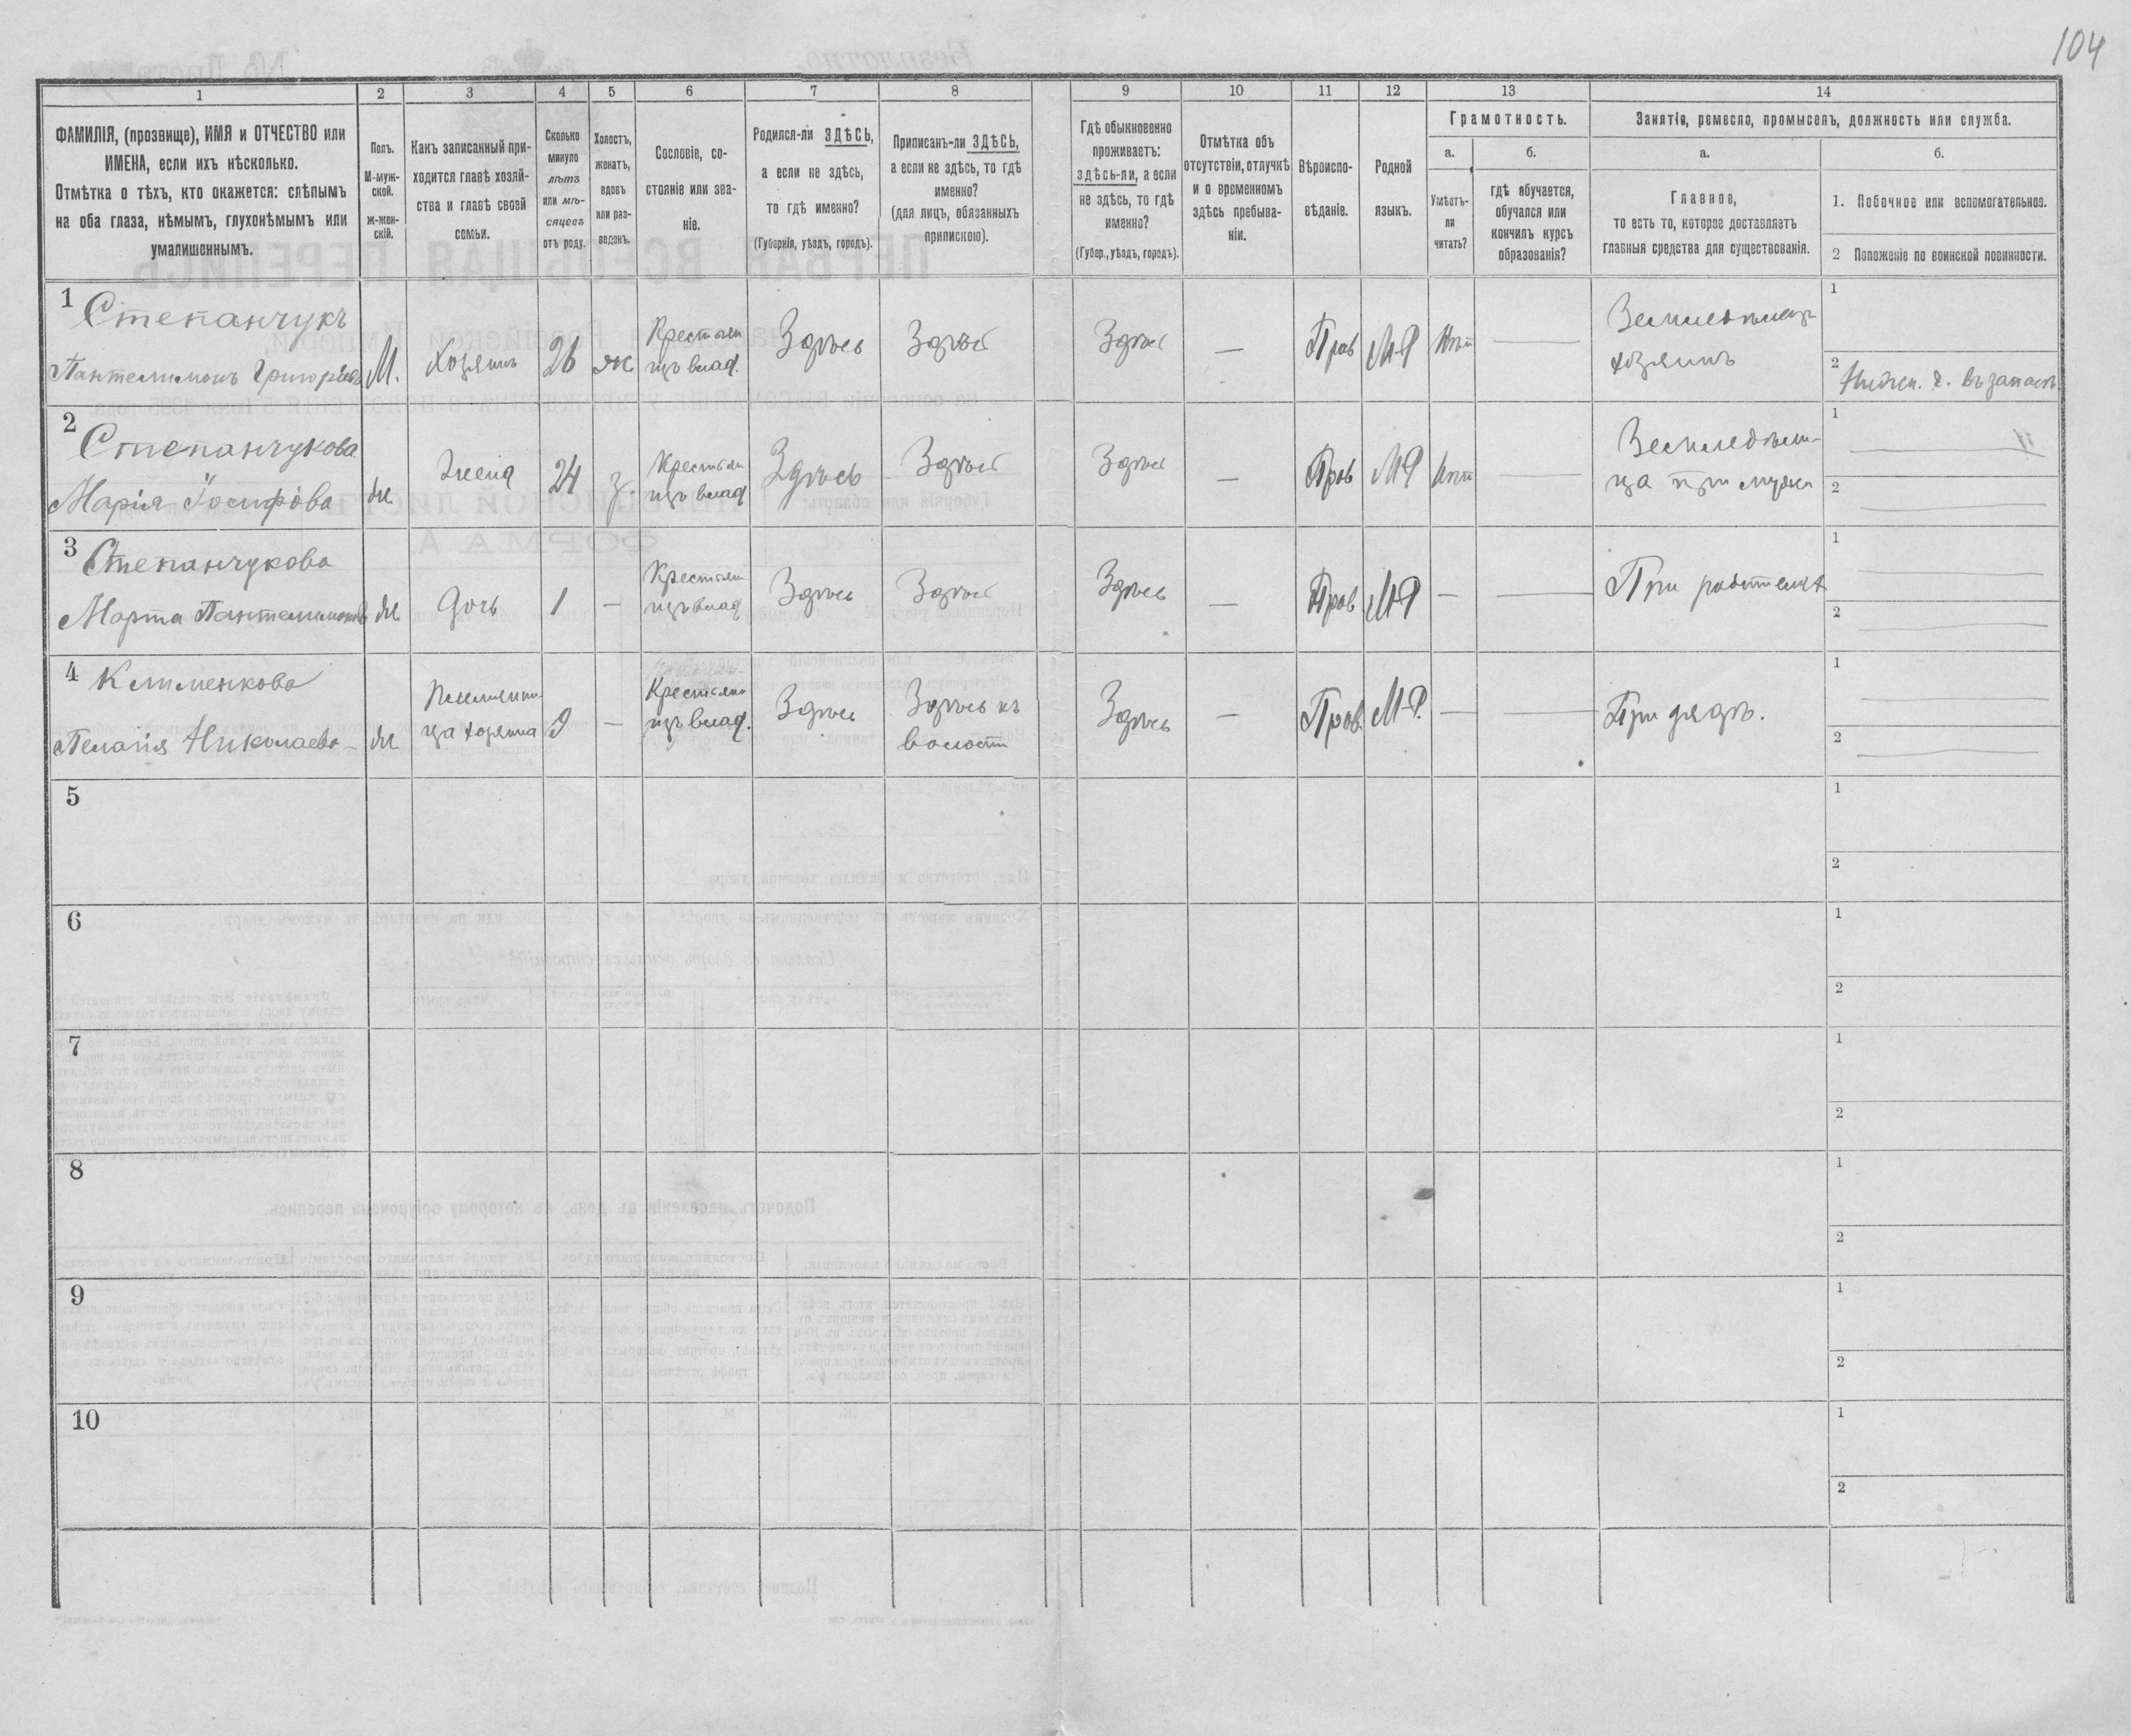 104
1 2 3 4 5 6 7 8 9 10 11 12 13 14
ФАМИЛІЯ, (прозвище), ИМЯ и ОТЧЕСТВО или
ИМЕНА, если ихъ нѣсколько.
Отмѣтка о тѣхъ, кто окажется: слѣпымъ
на оба глаза, нѣмымъ, глухонѣмымъ или
умалишоннымъ.
Полъ.
М-муж-
ской.
ж-жен-
скій.
Какъ записанный при-
ходится главѣ хозяй-
ства и главѣ своей
семьи.
Сколько
минуло
лѣтъ
или мѣ-
сяцевъ
отъ роду.
Холостъ,
женатъ,
вдовъ
или раз-
веденъ.
Сословіе, со-
стояніе или зва-
ніе.
Родился-ли ЗДѢСЬ,
а если не здѣсь,
то гдѣ именно?
(Губернія, уѣздъ, городъ).
Приписанъ-ли ЗДѢСЬ,
а если не здѣсь, то гдѣ
именно?
(для лицъ, обязанныхъ
припискою).
Гдѣ обыкновенно
проживаетъ:
здѣсь-ли, а если
не здѣсь, то гдѣ
именно?
(Губер., уѣздъ, городъ).
Отмѣтка объ
отсутствіи, отлучкѣ
и о временномъ
здѣсь пребыва-
ніи.
Вѣроиспо-
вѣданіе.
Родной
языкъ.
Грамотность.
а.
Умѣетъ-
ли
читать?
б.
гдѣ обучается,
обучался или
кончилъ курсъ
образованія?
Занятіе, ремесло, промыселъ, должность или служба.
а.
Главное,
то есть то, которое доставляетъ
главныя средства для существованія.
б.
1. Побочное или вспомогательное.
2 Положеніе по воинской повинности.
1 Степанчукъ
Пантелимонъ Григорьевъ М. Хозяинъ 26 ж Крестьян изъ влад. Здѣсь Здѣсь Здѣсь — Прав М-Р Нѣтъ —
хозяинъ
1
2 Нижн. ч. въ запасѣ
2 Степанчукова
Марія Іосифова ж Жена 24 з. Крестьян изъ влад Здѣсь Здѣсь Здѣсь — Прав М-Р Нѣтъ —
Земледѣли-
ца при мужѣ
1
2
3 Степанчукова
Марта Пантелимонов ж Дочь 1 — Крестьян изъ влад Здѣсь Здѣсь Здѣсь — Прав М-Р — —
При родителѣ
1
2
4 Клименкова
Пелагія Николаева ж Племянни-
ца хозяина 9 — Крестьян изъ влад. Здѣсь Здѣсь къ
волости Здѣсь — Прав. М-Р. — —
При дядѣ.
1
2
5
1
2
6
1
2
7
1
2
8
1
2
9
1
2
10
1
2